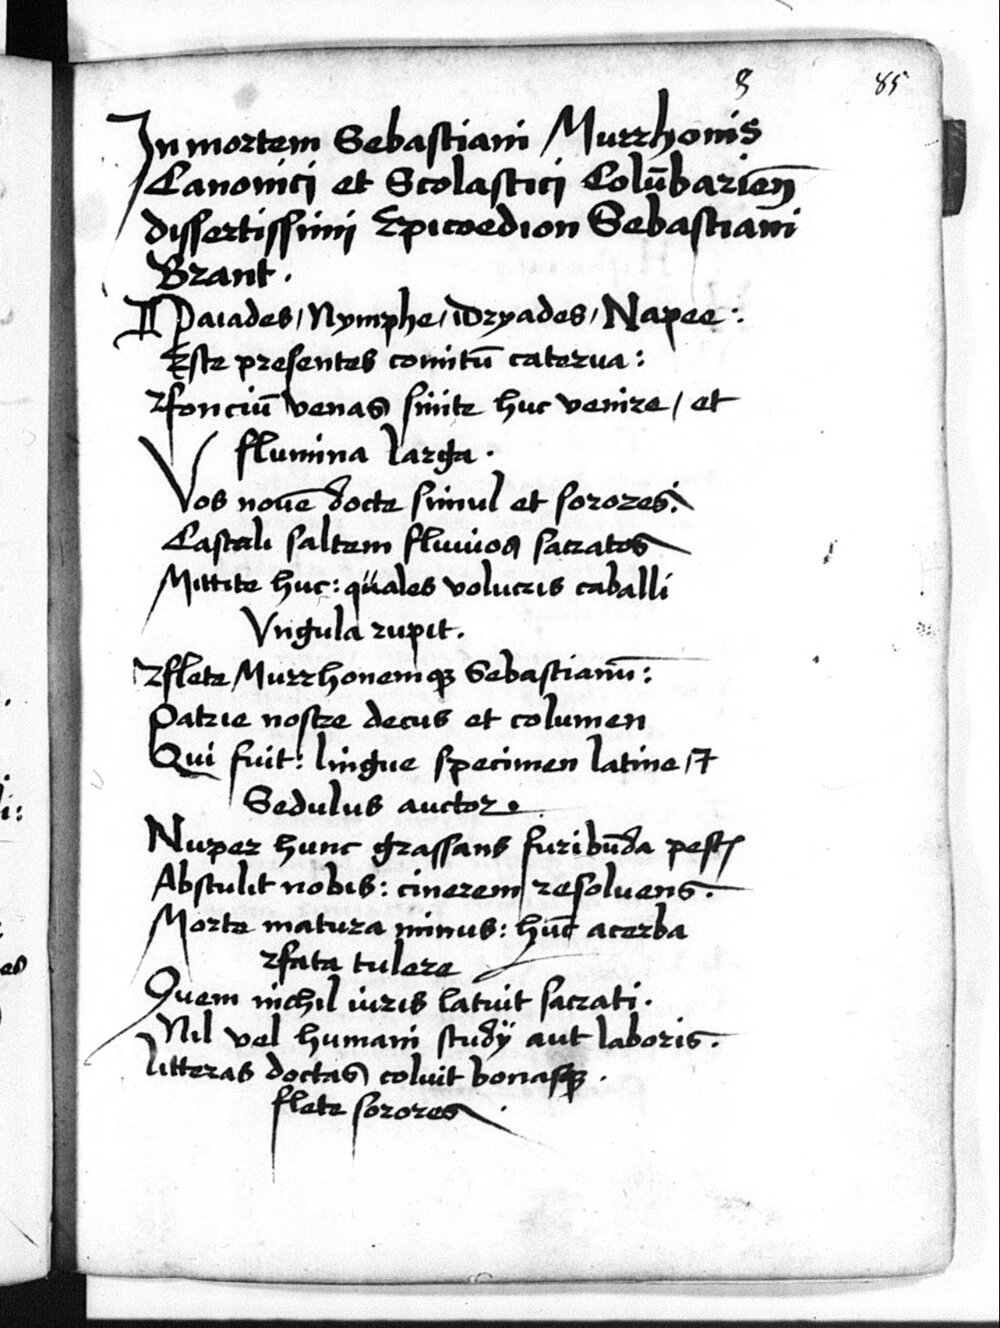 8 85
In mortem Sebastiani Murrhonis
Canonici et Scolastici Colūbarien̄
dissertissimi Epicoedion Sebastiani
Brant.
Naiades/ Nymphe/ Dryades/ Napee:
Este presentes comitū caterua:
ffonciū venas sinite huc venire/ et
flumina larga.
Vos nouē docte simul et sorores:
Castali saltem fluuios sacratos
Mittite huc: quales volucris caballi
Vngula rupit.
fflete Murrhonemqꝫ Sebastianū:
Patrie nostre decus et columen
Qui fuit: lingue specimen latine/ ⁊
Sedulus auctor.
Nuper hunc grassans furibūda pestis
Abstulit nobis: cinerem resoluens.
Morte matura minus: hūc acerba
ffata tulere
Quem nichil iuris latuit sacrati.
Nil vel humani studij aut laboris.
litteras doctas coluit bonasqꝫ.
flete sorores.